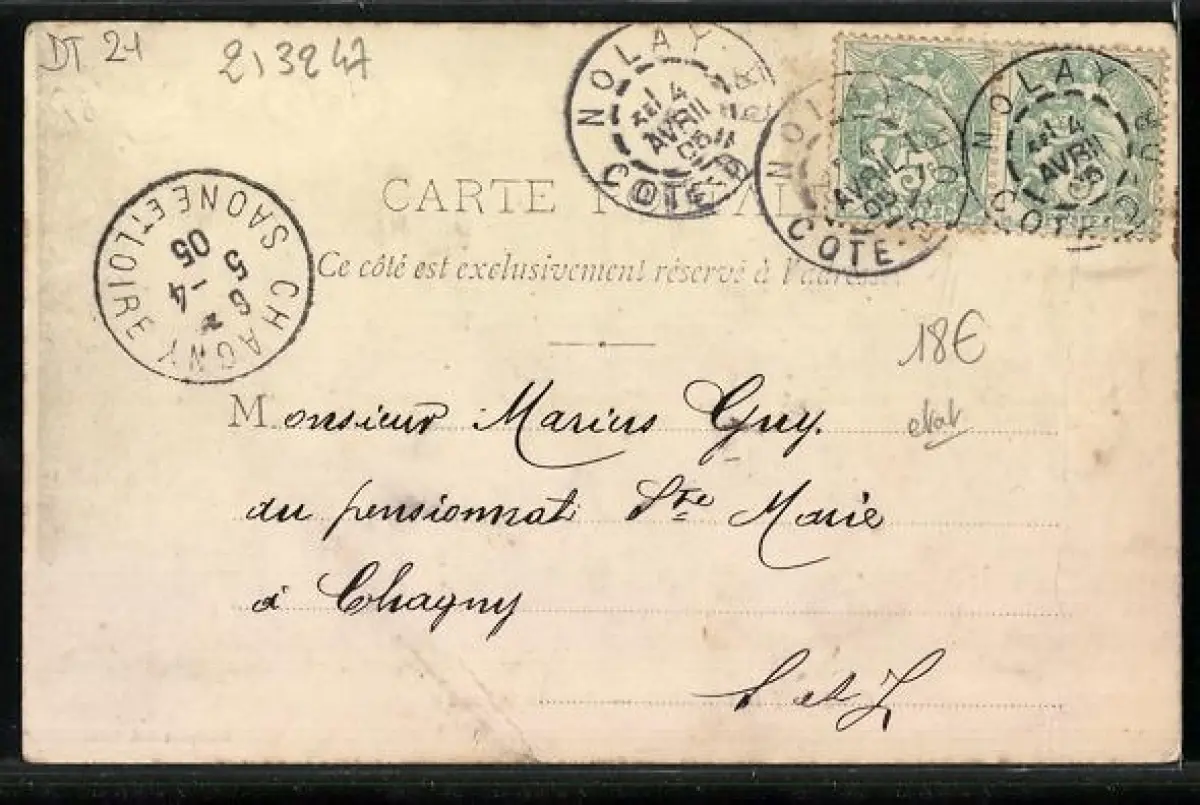 DT 21
213247
NOLAY
4
AVRIL
05
COTE-D
NOLAY
AVRIL
05
COTE-D
NOLAY
4
AVRIL
05
COTE-D
CARTE POSTALE
CHAGNY
SAONE ET LOIRE
6
5 -4
05
Ce côté est exclusivement réservé à l'adresse
18€
etat
Monsieur Marius Guy.
au pensionnat Ste Marie
à Chagny
S et L